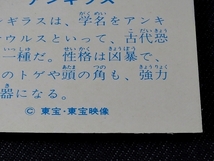 アンギラス
ンギラスは、学名をアンキ
ウルスといって、古代恐
一種だ。性格は凶暴で、
のトゲや頭の角も、強力
器になる。
© 東宝・東宝映像